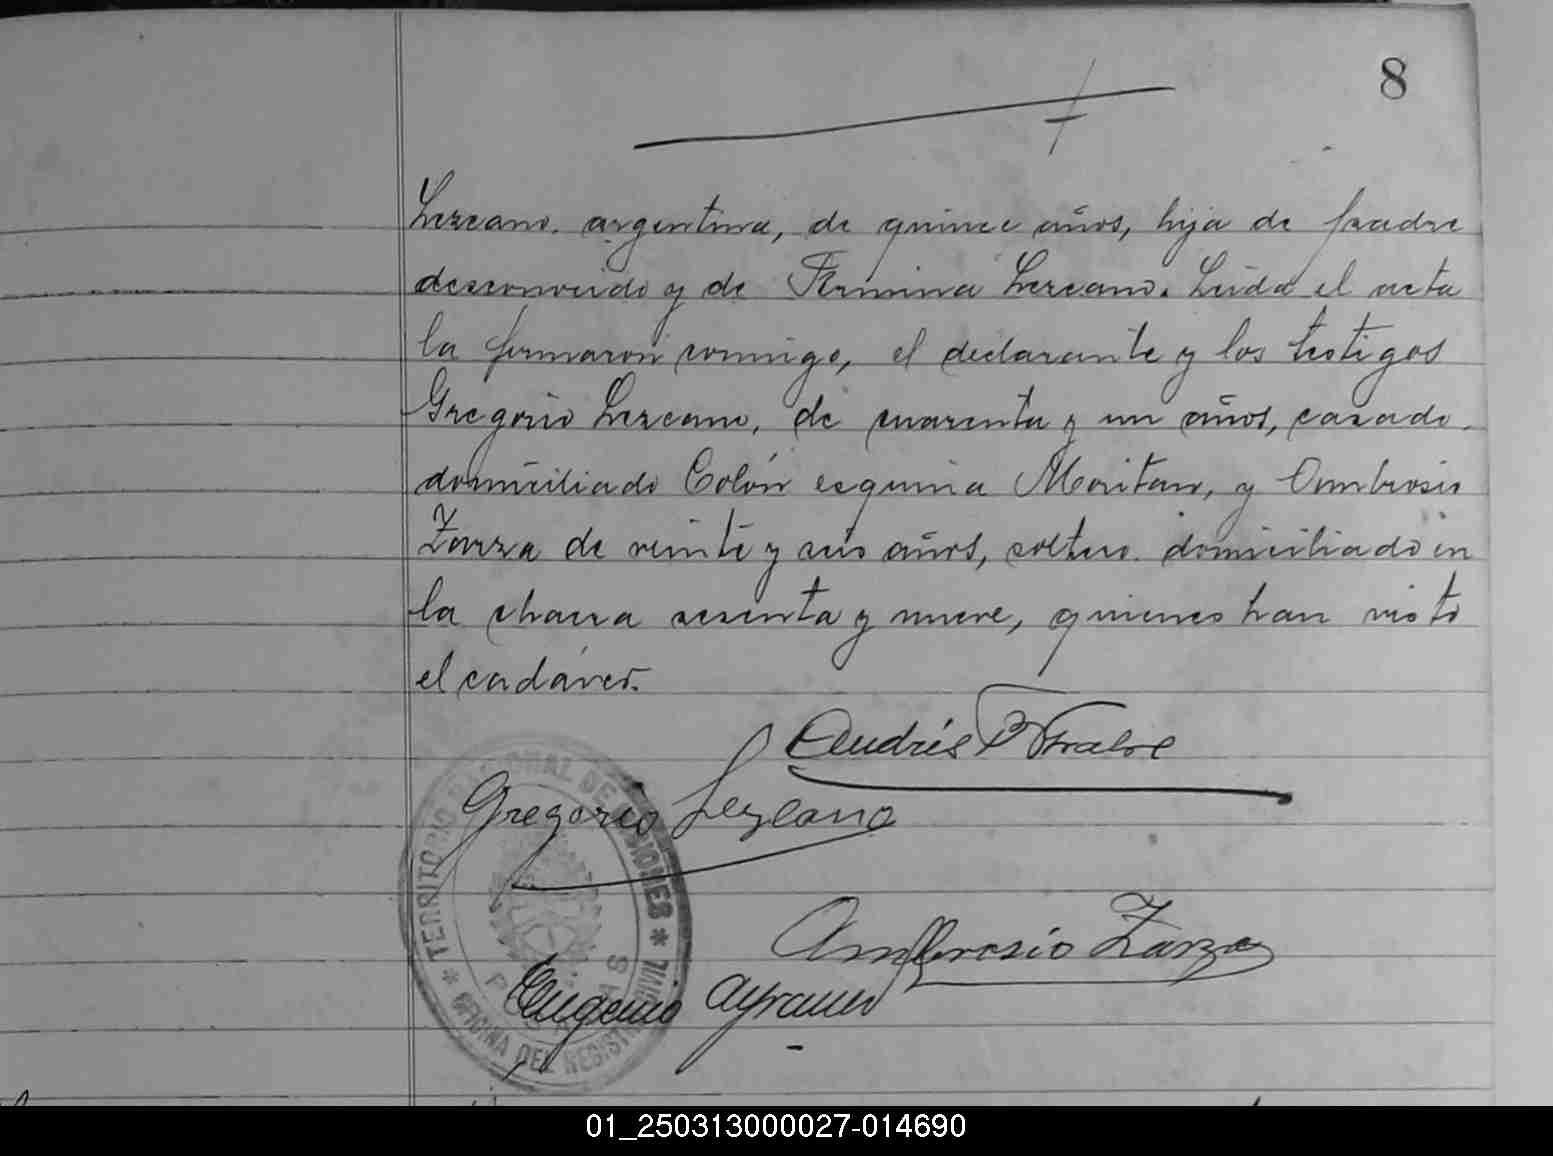 8
Lezcano, argentina, de quince años, hija de padre
desconocido y de Fermina Lezcano. Leída el acta
la firmaron conmigo, el declarante y los testigos
Gregorio Lezcano, de cuarenta y un años, casado,
domiciliado Colón esquina Moritan, y Ambrosio
Zarza de veinte y seis años, soltero, domiciliado en
la chacra sesenta y nueve, quienes han visto
el cadáver.
Andrés
Gregorio Lezcano
Ambrosio Zarza
Eugenio
TERRITORIO NACIONAL DE MISIONES * OFICINA DEL REGISTRO CIVIL *
POSADAS
01_250313000027-014690